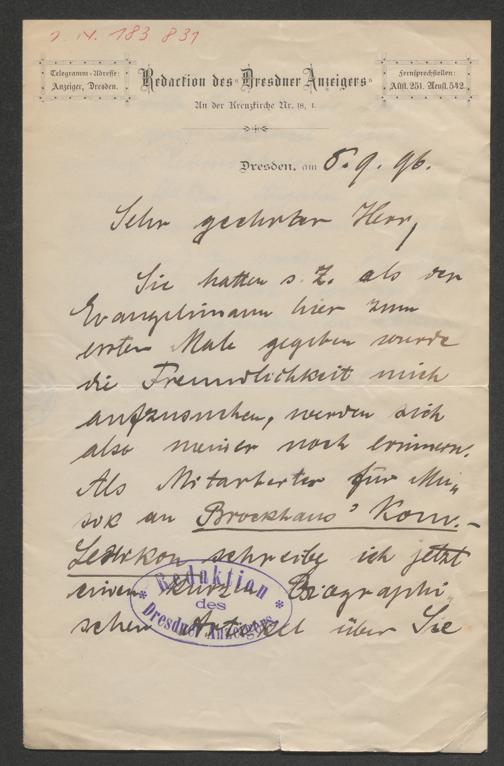 I. N. 183 831
Telegramm-Adresse:
Anzeiger, Dresden.
Redaction des "Dresdner Anzeigers"
An der Kreuzkirche Nr. 18, I.
Fernsprechstellen:
Altst. 251. Neust. 542.
Dresden, am 8. 9. 96.
Sehr geehrter Herr,
Sie hatten s. Z. als der
Evangelimann hier zum
ersten Male gegeben wurde
die Freundlichkeit mich
aufzusuchen, werden sich
also meiner noch erinnern.
Als Mitarbeiter für Mu-
sik an Brockhaus' Konv.-
Lexikon schreibe ich jetzt
einen kurzen Biographi-
schen Artikel über Sie
* Redaktion *
des
Dresdner Anzeigers